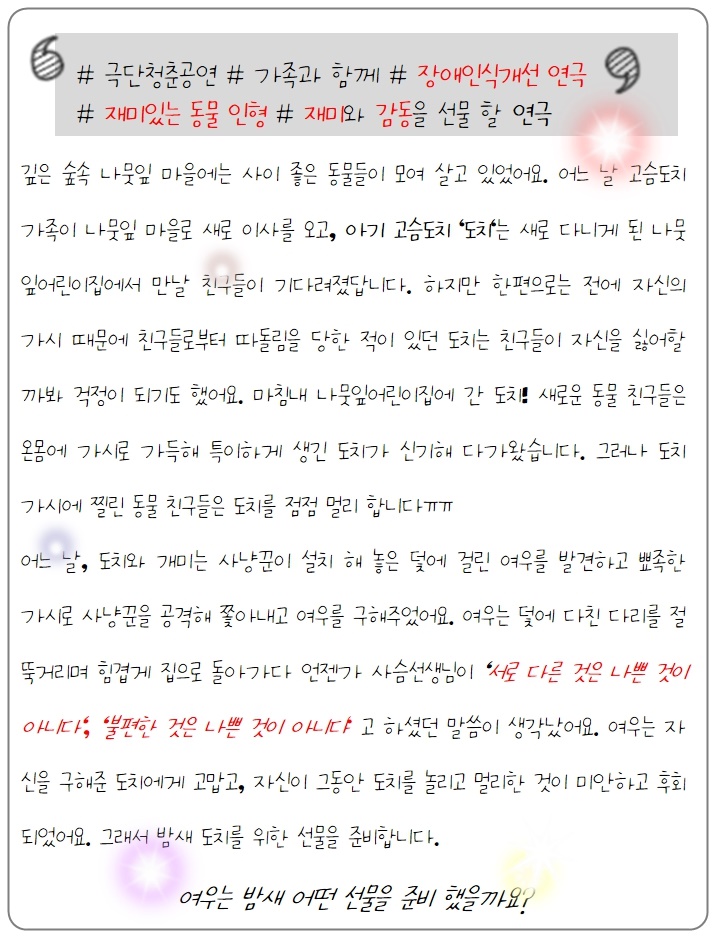 # 극단청춘공연 # 가족과 함께 # 장애인식개선 연극
# 재미있는 동물 인형 # 재미와 감동을 선물 할 연극
깊은 숲속 나뭇잎 마을에는 사이 좋은 동물들이 모여 살고 있었어요. 어느 날 고슴도치
가족이 나뭇잎 마을로 새로 이사를 오고, 아기 고슴도치 '도치'는 새로 다니게 된 나뭇
잎어린이집에서 만날 친구들이 기다려졌답니다. 하지만 한편으로는 전에 자신의
가시 때문에 친구들로부터 따돌림을 당한 적이 있던 도치는 친구들이 자신을 싫어할
까봐 걱정이 되기도 했어요. 마침내 나뭇잎어린이집에 간 도치! 새로운 동물 친구들은
온몸에 가시로 가득해 특이하게 생긴 도치가 신기해 다가왔습니다. 그러나 도치
가시에 찔린 동물 친구들은 도치를 점점 멀리 합니다ㅠㅠ
어느 날, 도치와 개미는 사냥꾼이 설치 해 놓은 덫에 걸린 여우를 발견하고 뾰족한
가시로 사냥꾼을 공격해 쫓아내고 여우를 구해주었어요. 여우는 덫에 다친 다리를 절
뚝거리며 힘겹게 집으로 돌아가다 언젠가 사슴선생님이 '서로 다른 것은 나쁜 것이
아니다', '불편한 것은 나쁜 것이 아니다' 고 하셨던 말씀이 생각났어요. 여우는 자
신을 구해준 도치에게 고맙고, 자신이 그동안 도치를 놀리고 멀리한 것이 미안하고 후회
되었어요. 그래서 밤새 도치를 위한 선물을 준비합니다.
여우는 밤새 어떤 선물을 준비 했을까요?